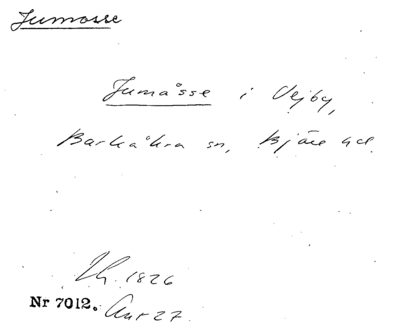 Jumosse
Jumåsse i Vejby,
Barkåkra sn, Bjäre hd.
Lh. 1826
Nr 7012.